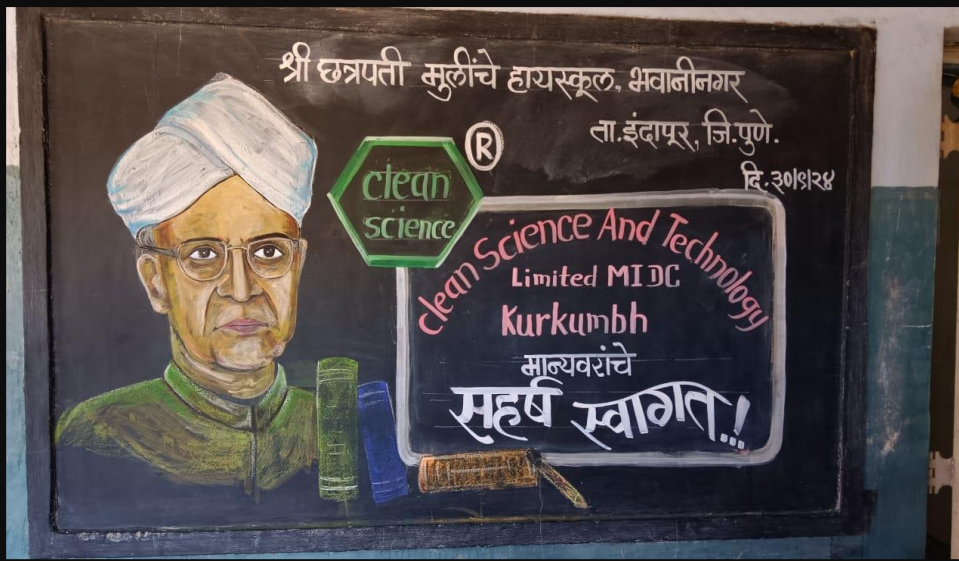 श्री छत्रपती मुलींचे हायस्कूल, भवानीनगर
ता.इंदापूर, जि.पुणे.
दि.३०/९/२४
clean
science
®
clean Science And Technology
Limited MIDC
Kurkumbh
मान्यवरांचे
सहर्ष स्वागत!!